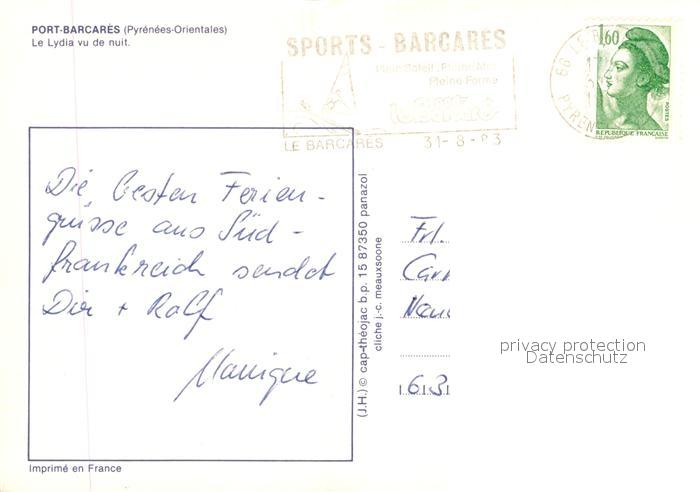 PORT-BARCARÈS (Pyrénées-Orientales)
Le Lydia vu de nuit.
SPORTS - BARCARES
Plein Soleil, Pleine Mer,
Pleine Forme
LE BARCARES 31-8-83
66 LE B
PYREN
1,60
POSTES
REPUBLIQUE FRANÇAISE
Die besten Ferien-
grüsse aus Süd-
frankreich sendet
Dir + Rolf
Monique
(J.H.) © cap-théojac b.p. 15 87350 panazol
cliche j.-c. meauxsoone
Frl.
Carr
privacy protection
Datenschutz
631
Imprimé en France